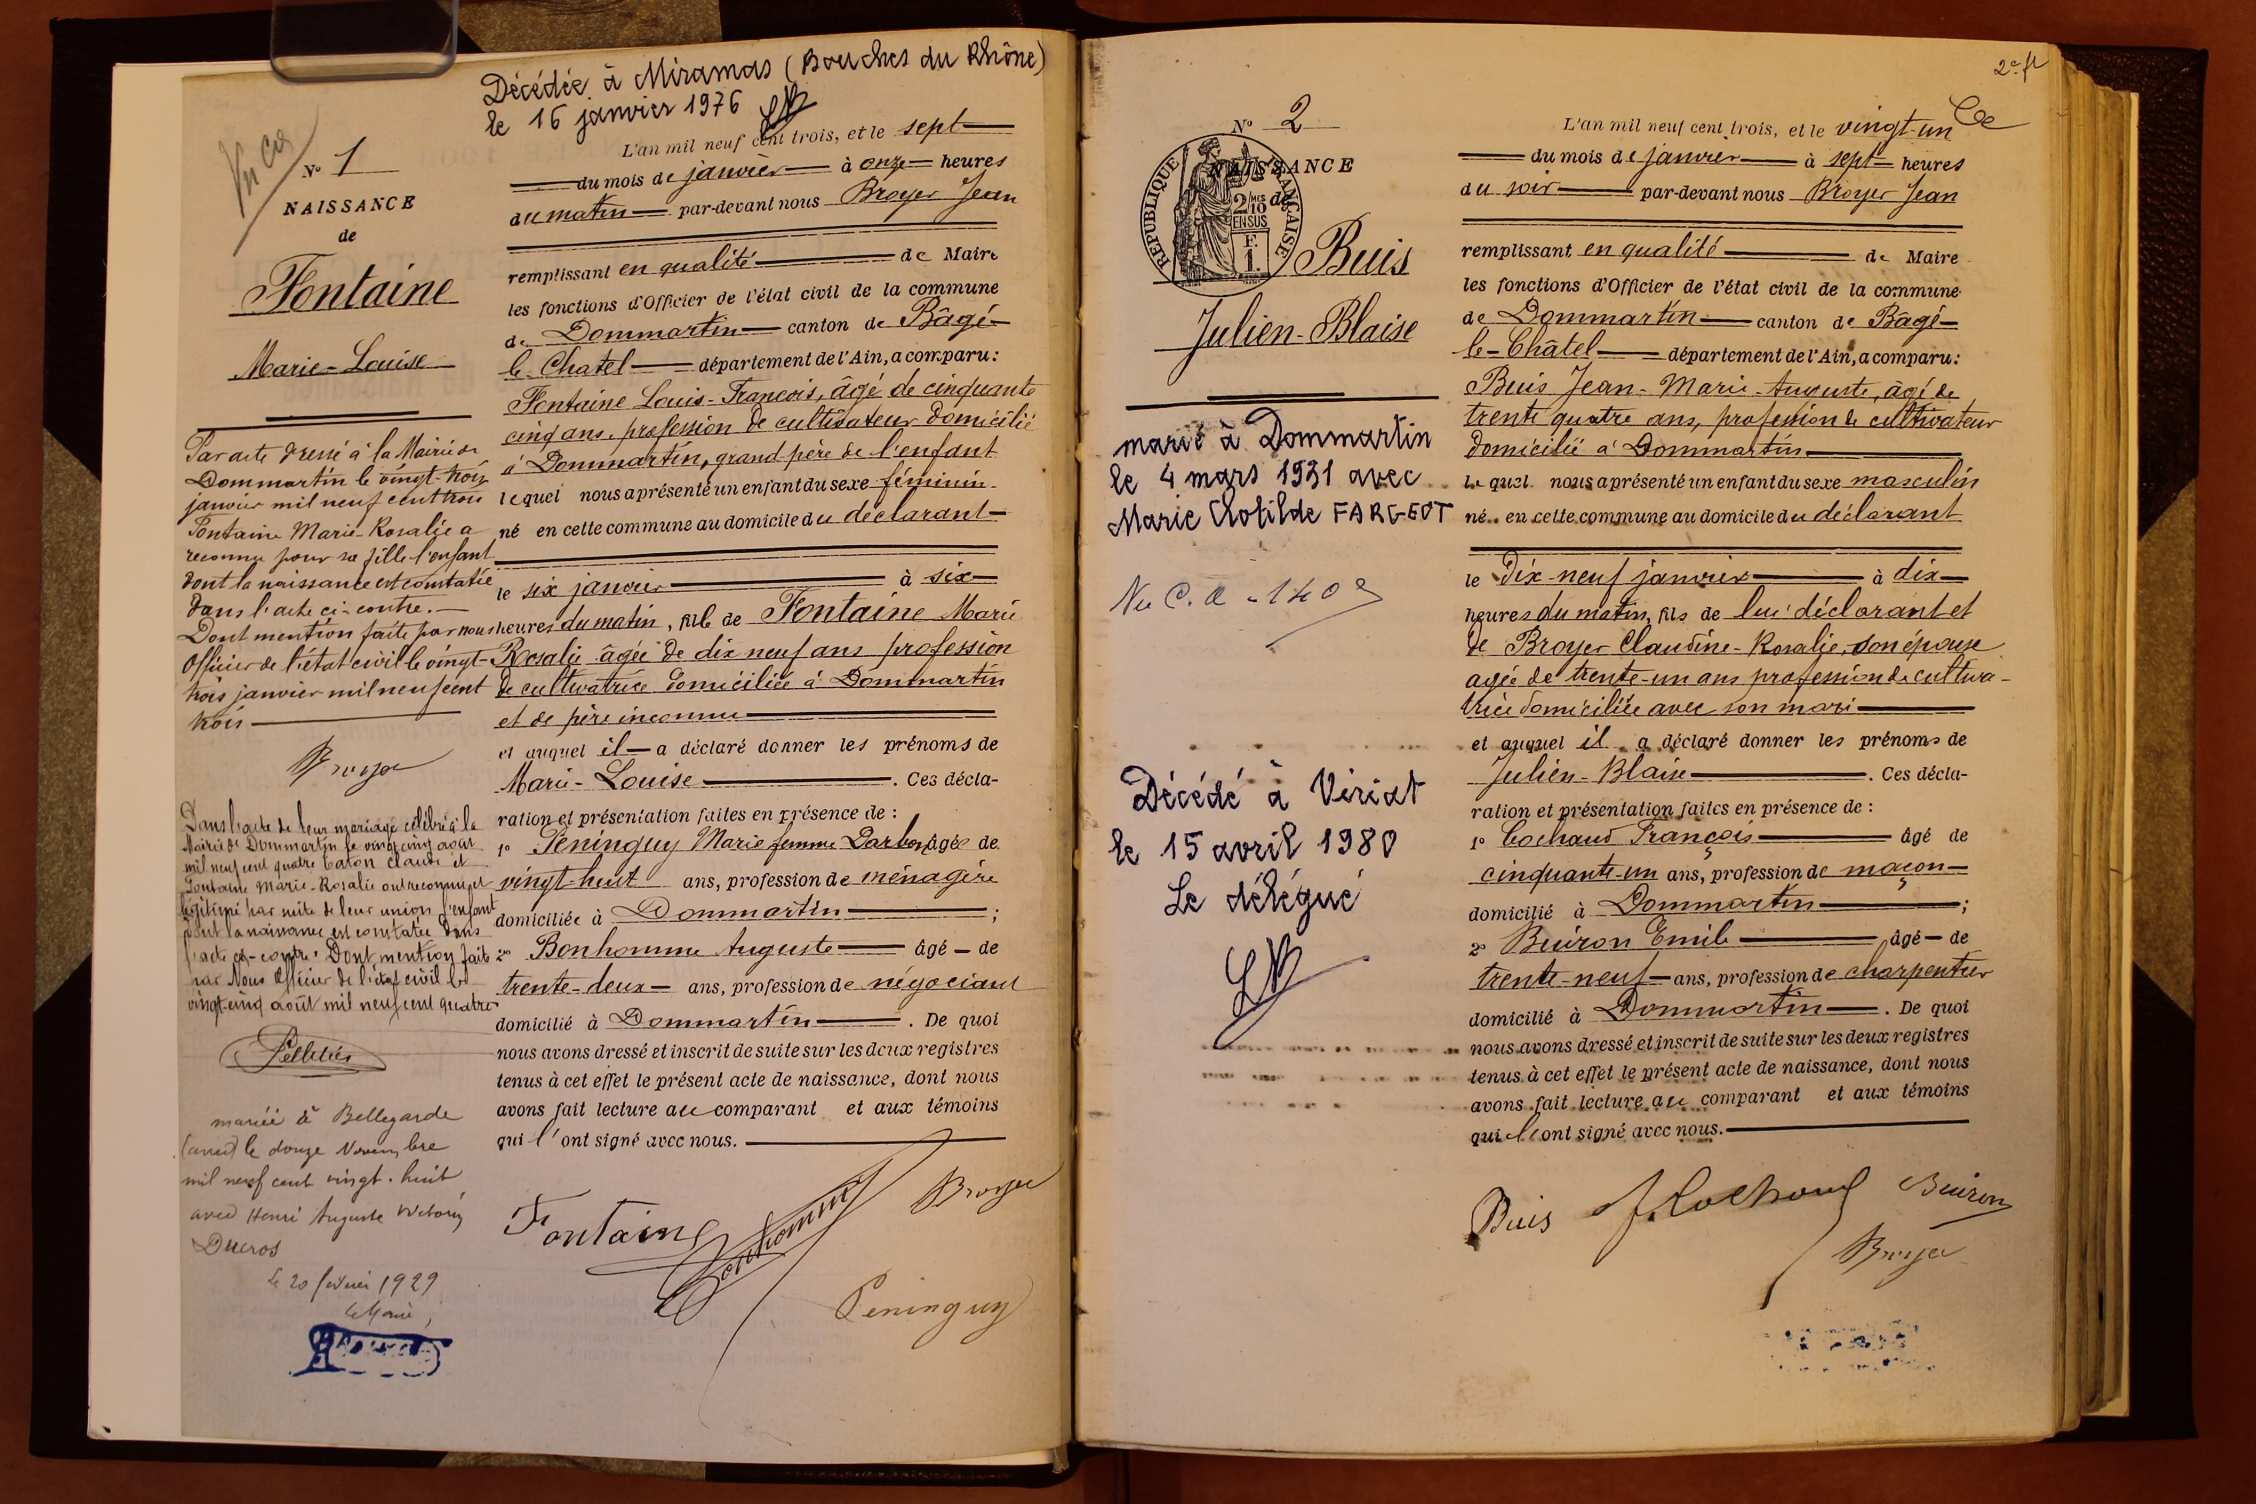 Décédée à Miramas (Bouches du Rhône)
le 16 janvier 1976
Nº 1
NAISSANCE
de
Fontaine
Marie-Louise
Par acte dressé à la Mairie de
Dommartin le vingt-trois
janvier mil neuf cent trois
Fontaine Marie-Rosalie a
reconnu pour sa fille l'enfant
dont la naissance est constatée
dans l'acte ci-contre.
Dont mention faite par nous
Officier de l'état civil le vingt-
trois janvier mil neuf cent
trois
Broyer
Dans l'acte de leur mariage célébré à la
Mairie de Dommartin le vingt cinq août
mil neuf cent quatre Claude et
Fontaine Marie-Rosalie ont reconnu et
légitimé par suite de leur union l'enfant
dont la naissance est constatée dans
l'acte ci-contre. Dont mention faite
par Nous Officier de l'état civil le
vingt-cinq août mil neuf cent quatre
Pelletier
mariée à Bellegarde
le douze Novembre
mil neuf cent vingt-huit
avec Henri Auguste
Ducros
le 20 février 1929
Le Maire,
L'an mil neuf cent trois, et le sept
du mois de janvier à onze heures
du matin par-devant nous Broyer Jean
remplissant en qualité de Maire
les fonctions d'Officier de l'état civil de la commune
de Dommartin canton de Bâgé-
le Chatel département de l'Ain, a comparu:
Fontaine Louis-François, âgé de cinquante
cinq ans, profession de cultivateur domicilié
à Dommartin, grand père de l'enfant
lequel nous a présenté un enfant du sexe féminin
né en cette commune au domicile du déclarant
le six janvier à six
heures du matin, fille de Fontaine Marie
Rosalie âgée de dix neuf ans profession
de cultivatrice domiciliée à Dommartin
et de père inconnu
et auquel il a déclaré donner les prénoms de
Marie-Louise. Ces décla-
ration et présentation faites en présence de :
1º Péninguy Marie femme Parbon âgée de
vingt-huit ans, profession de ménagère
domiciliée à Dommartin ;
2º Bonhomme Auguste âgé de
trente-deux ans, profession de négociant
domicilié à Dommartin. De quoi
nous avons dressé et inscrit de suite sur les deux registres
tenus à cet effet le présent acte de naissance, dont nous
avons fait lecture au comparant et aux témoins
qui l'ont signé avec nous.
Fontaine
Bonhomme
Broyer
Péninguy
2e ft
Nº 2
NAISSANCE
de
REPUBLIQUE FRANÇAISE
2/10 MES
EN SUS
F.
1.
Buis
Julien-Blaise
marié à Dommartin
le 4 mars 1931 avec
Marie Clotilde FARGEOT
Décédé à Viriat
le 15 avril 1980
Le délégué
L'an mil neuf cent trois, et le vingt-un
du mois de janvier à sept heures
du soir par-devant nous Broyer Jean
remplissant en qualité de Maire
les fonctions d'Officier de l'état civil de la commune
de Dommartin canton de Bâgé-
le-Châtel département de l'Ain, a comparu:
Buis Jean-Marie-Auguste, âgé de
trente quatre ans, profession de cultivateur
domicilié à Dommartin
lequel nous a présenté un enfant du sexe masculin
né en cette commune au domicile du déclarant
le dix-neuf janvier à dix
heures du matin, fils de lui déclarant et
de Broyer Claudine-Rosalie, son épouse
agée de trente-un ans profession de cultiva-
trice domiciliée avec son mari
et auquel il a déclaré donner les prénoms de
Julien-Blaise. Ces décla-
ration et présentation faites en présence de :
1º Cochaud François âgé de
cinquante-un ans, profession de maçon
domicilié à Dommartin ;
2º Buiron Emile âgé de
trente-neuf ans, profession de charpentier
domicilié à Dommartin. De quoi
nous avons dressé et inscrit de suite sur les deux registres
tenus à cet effet le présent acte de naissance, dont nous
avons fait lecture au comparant et aux témoins
qui l'ont signé avec nous.
Buis
f. Cochaud
Buiron
Broyer